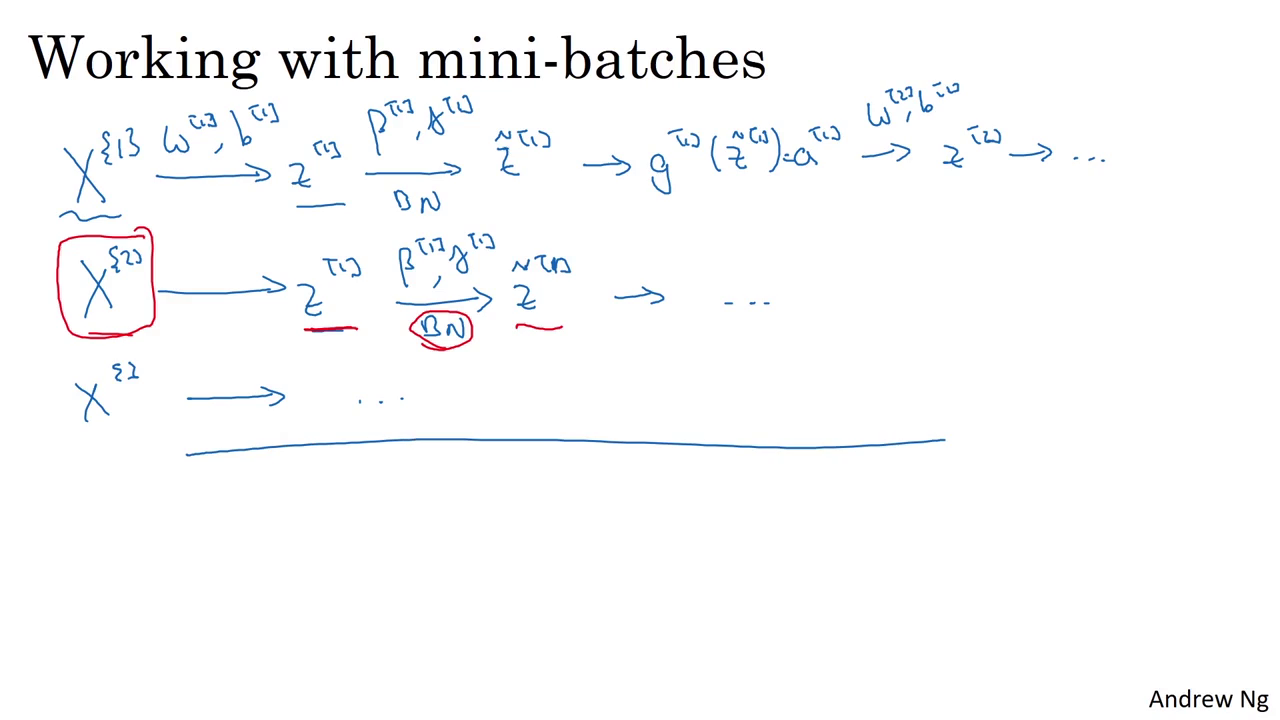 Working with mini-batches
X^{1} W^[1], b^[1] → z^[1] β^[1], γ^[1] → BN z̃^[1] → g^[1](z̃^[1]) = a^[1] W^[2], b^[2] → z^[2] → ...
X^{2} → z^[1] β^[1], γ^[1] → BN z̃^[1] → ...
X^{} → ...
Andrew Ng